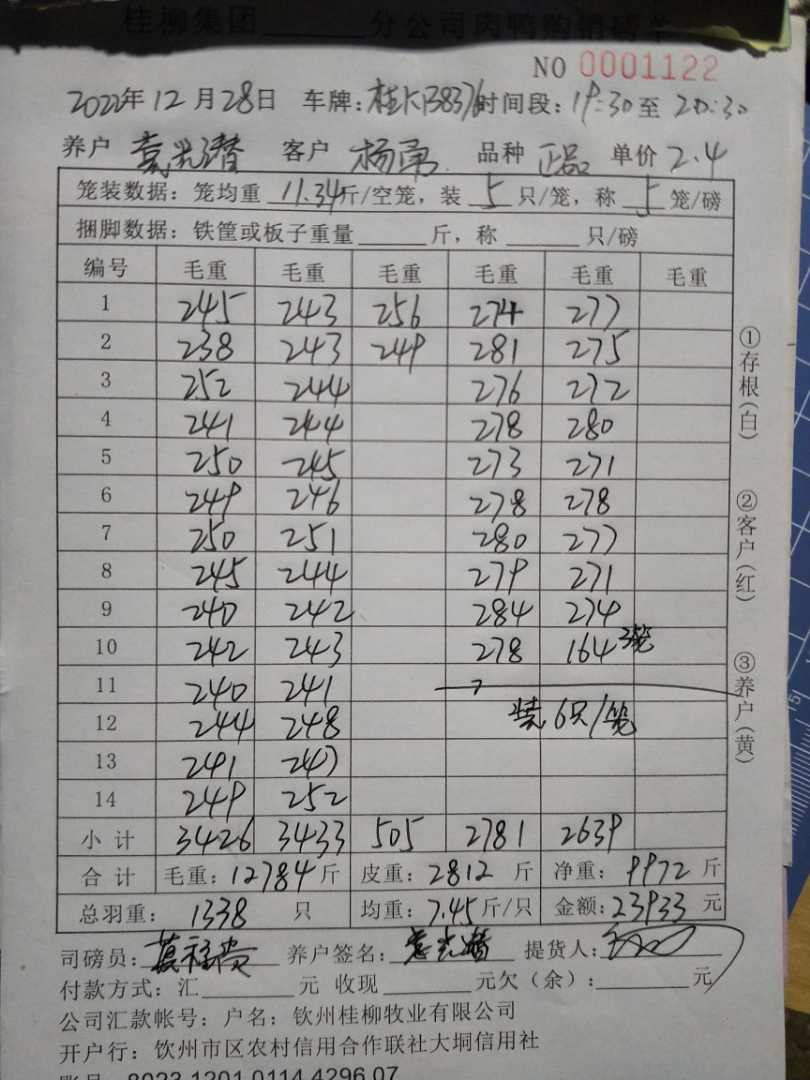 桂柳集团______分公司肉鸭购销磅单
NO 0001122
2022年12月28日 车牌: 时间段:19:30至20:30
养户 袁光潜 客户 杨勇 品种 正品 单价 2.4
笼装数据:笼均重 11.34斤/空笼,装 5 只/笼,称 5 笼/磅
捆脚数据:铁筐或板子重量______斤,称______只/磅
编号 毛重 毛重 毛重 毛重 毛重 毛重
1 245 243 256 274 277
2 238 243 249 281 275
3 252 244 276 272
4 241 244 278 280
5 250 245 273 271
6 249 246 278 278
7 250 251 280 277
8 245 244 279 271
9 240 242 284 274
10 242 243 278 164 3笼
11 240 241
12 244 248 装6只/笼
13 241 247
14 249 252
小计 3426 3433 505 2781 2639
合计 毛重:12784斤 皮重:2812 斤 净重:9972斤
总羽重: 1338 只 均重:7.45斤/只 金额:23933元
司磅员: 养户签名:袁光潜 提货人:
付款方式:汇______元 收现______元欠(余):______元
公司汇款帐号:户名:钦州桂柳牧业有限公司
开户行:饮州市区农村信用合作联社大垌信用社
账号 8023 1201 0114 4296 07
①存根(白)
②客户(红)
③养户(黄)